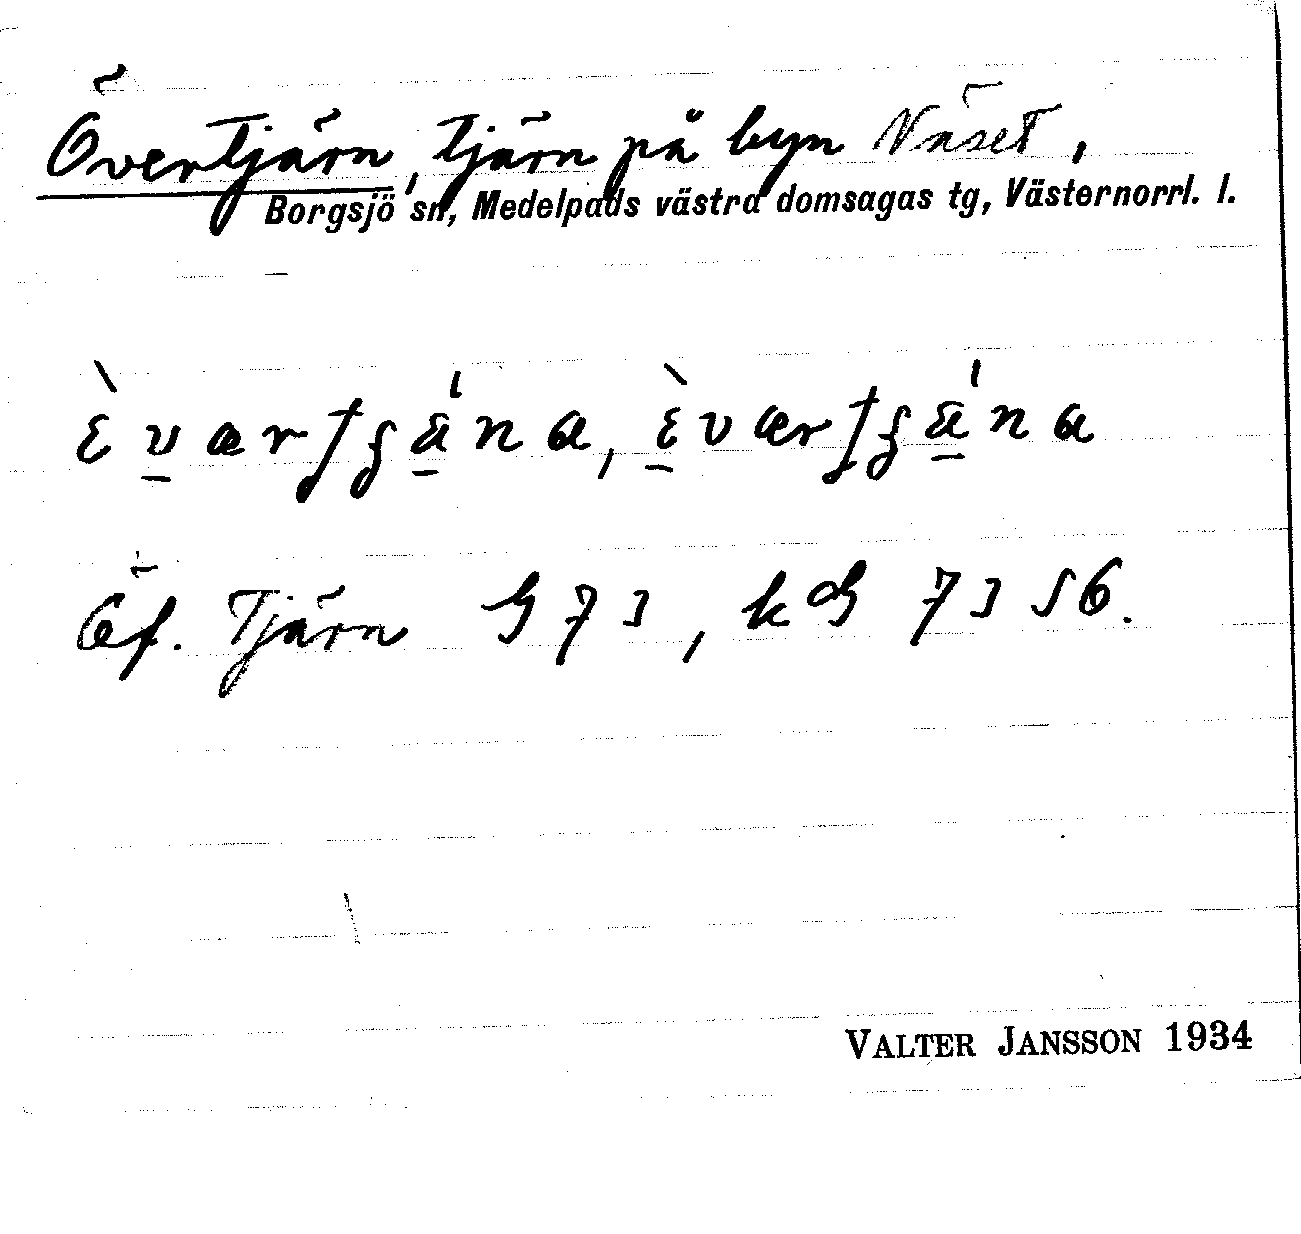 Övertjärn, tjärn på byn Näset,
Borgsjö sn, Medelpads västra domsagas tg, Västernorrl. l.
Öf. Tjärn G 73, kG 7356.
VALTER JANSSON 1934